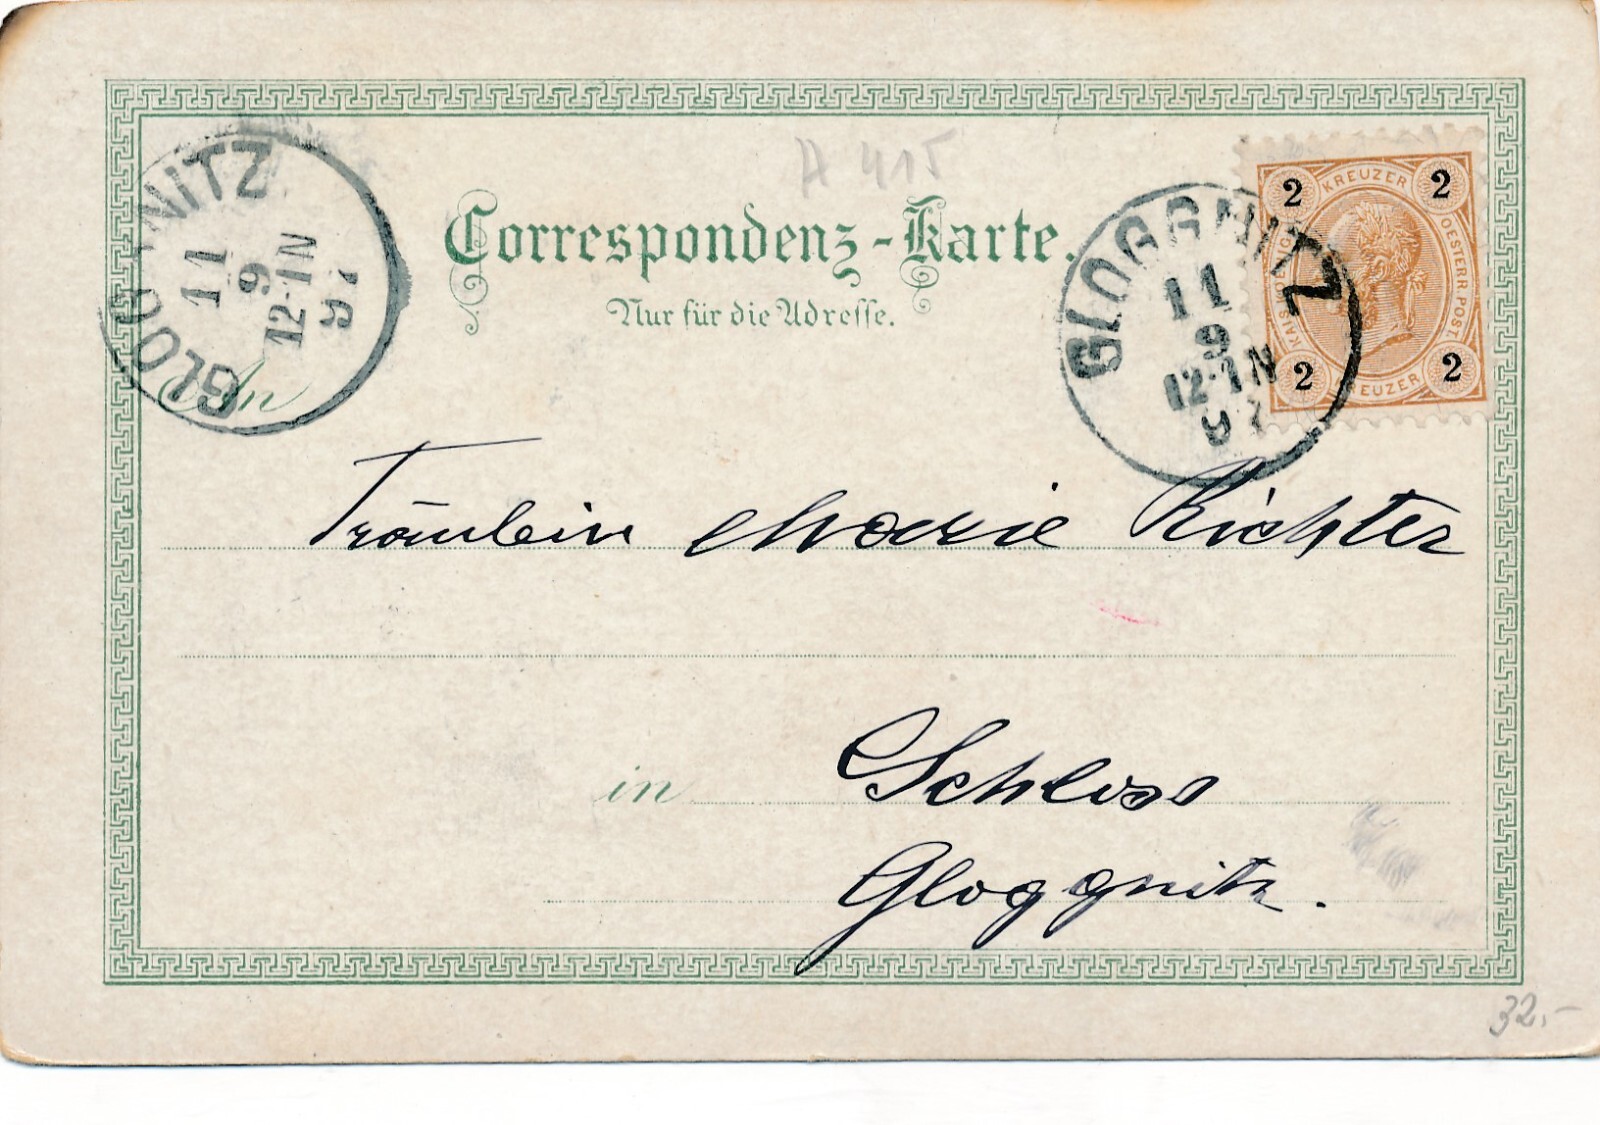 A 415
Correspondenz-Karte.
Nur für die Adresse.
GLOGGNITZ
11
9
12-1N
97
GLOGGNITZ
11
9
12-1N
97
2 KREUZER 2
OESTERR POST
2 KREUZER 2
An
Fräulein Marie Richter
in Schloss
Gloggnitz.
32,-